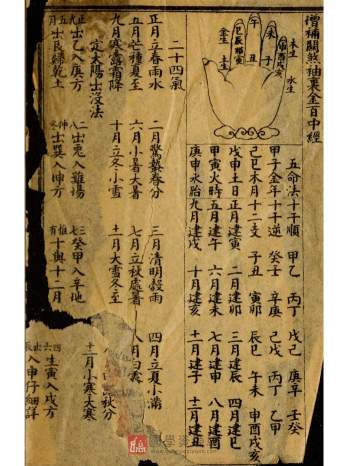 增補關煞袖裏金百中經
午
未
巳
辰
丑
子
木生
火生
水生
金生
土生
五命法十干順 甲乙 丙丁 戊己 庚辛 壬癸
甲子金年十干逆 癸壬 辛庚 己戊 丁丙 乙甲
己巳木月十二支 子丑 寅卯 辰巳 午未 申酉戌亥
戊申土日正月建寅 二月建卯 三月建辰 四月建巳
甲寅火時五月建午 六月建未 七月建申 八月建酉
庚申水胎九月建戌 十月建亥 十一月建子 十二月建丑
二十四氣
正月立春雨水 二月驚蟄春分 三月清明穀雨 四月立夏小滿
五月芒種夏至 六月小暑大暑 七月立秋處暑 八月白露秋分
九月寒露霜降 十月立冬小雪 十一月大雪冬至 十二月小寒大寒
定太陽出沒法
正九出乙入庚方 二八出兔入雞場 三七癸甲入辛地 四六生寅入戌方
五月出艮歸乾土 仲冬出巽入坤方 惟有十與十二月 出辰入申仔細詳